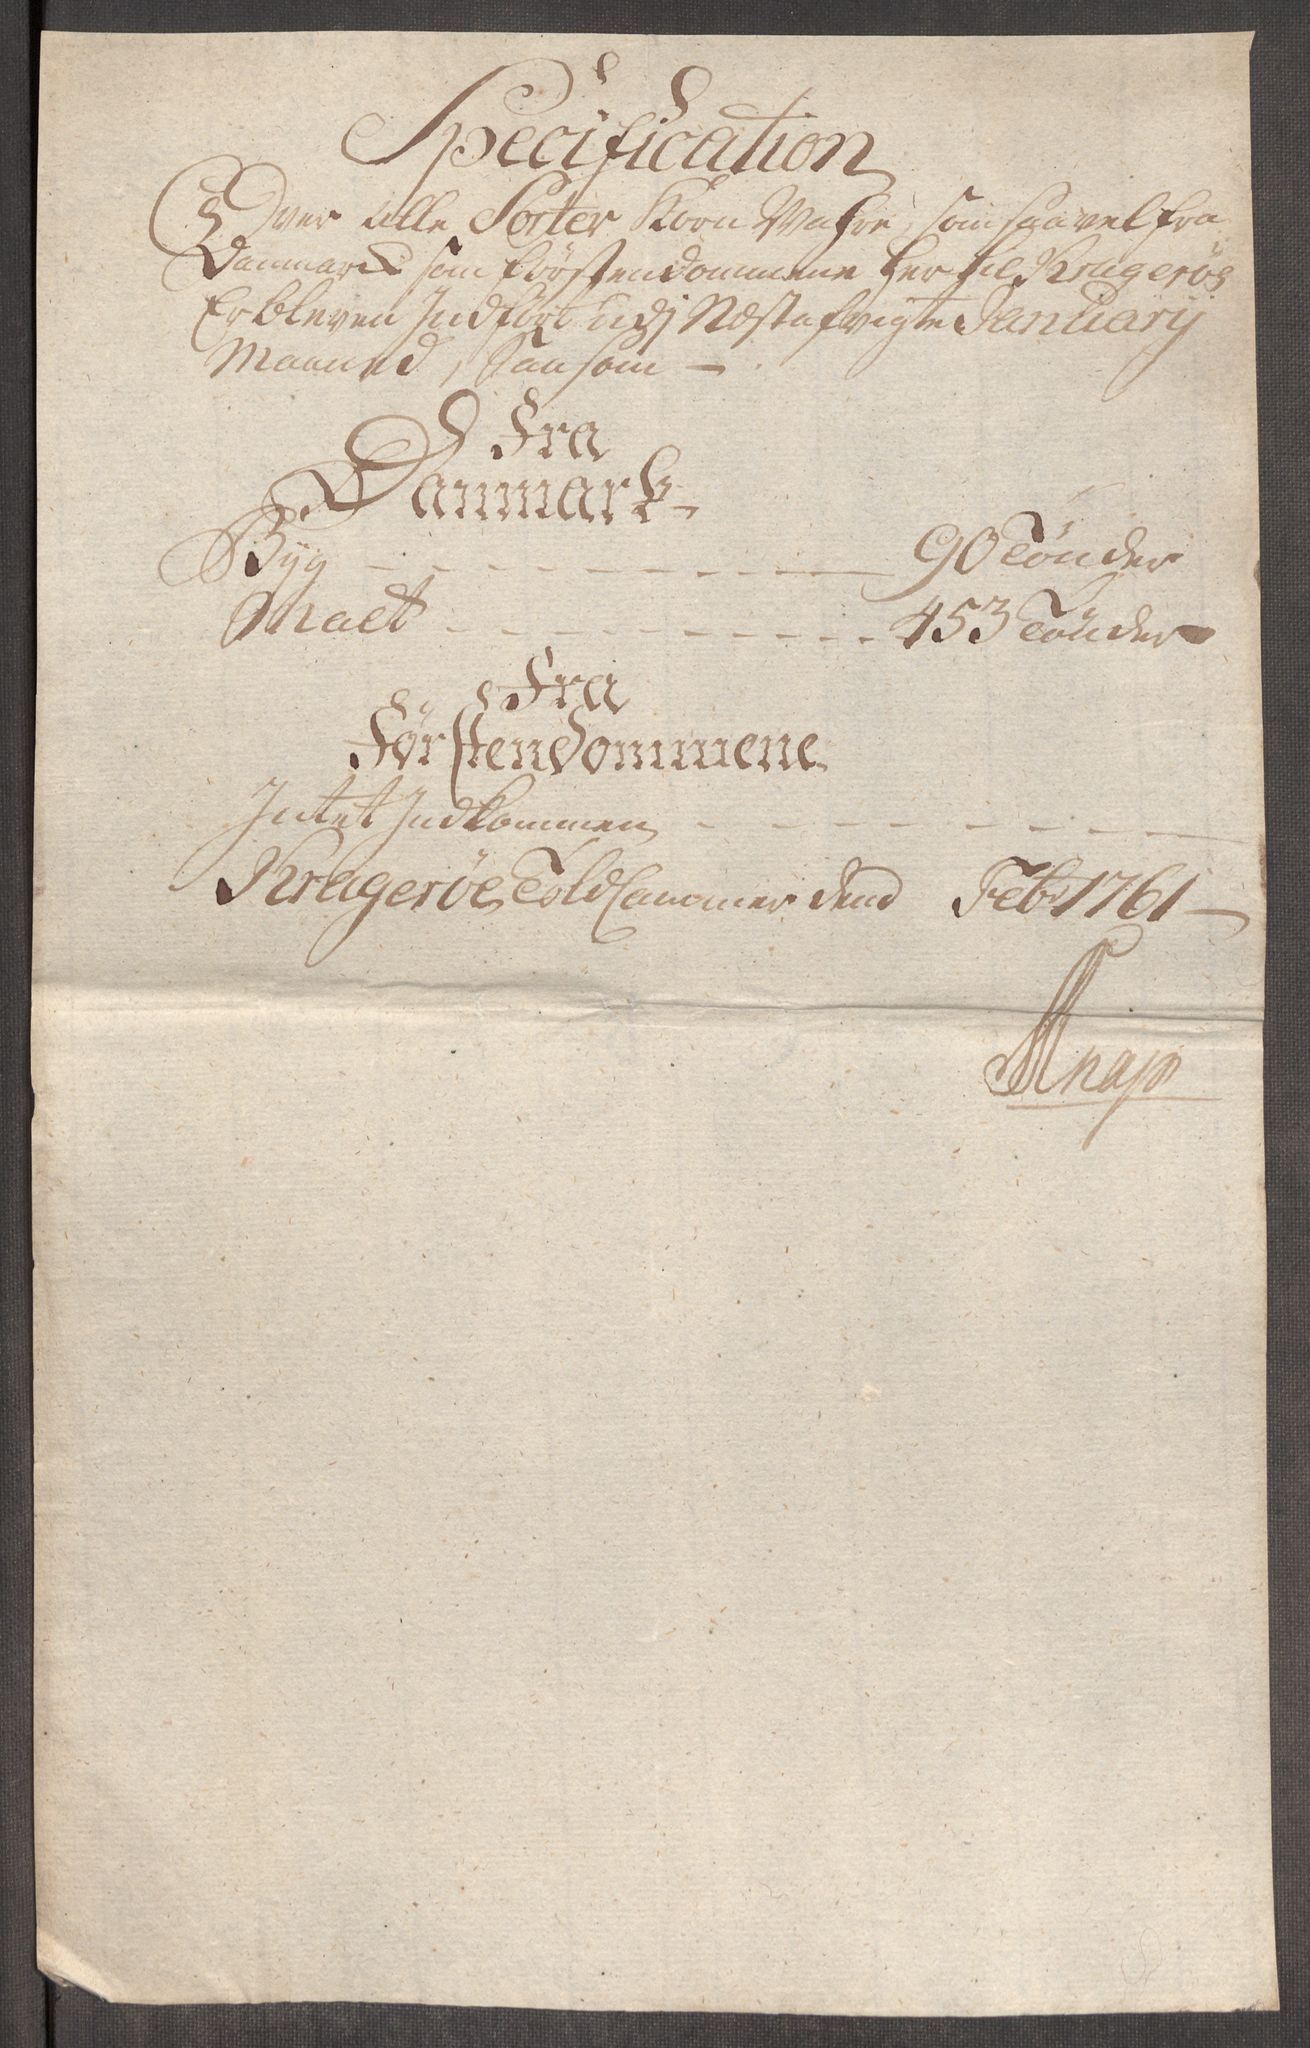 Specification
Over alle Sorter Korn Vahre, som saavel fra
Danmark som Förstendommene her til Kragerøe
Er bleven Indført udj Næstafvigte January
Maaned, Saasom —
Fra
Danmark
Byg 90 Tönder
Malt 453 Tönder
Fra
Förstendommene
Intet Indkommen
Kragerøe Told Cammer dend Febr 1761
Knap